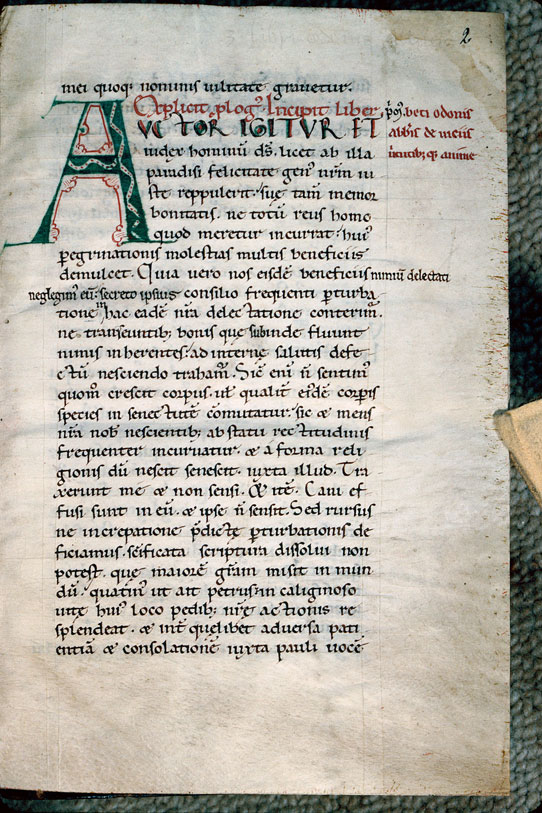 2
mei quoq; nominis uilitate grauetur.
Explicit plogꝰ. Incipit liber
pꝰ. beti odonis
abbis de
AUCTOR IGITUR ET
iudex hominũ ds̃. licet ab illa
paradisi felicitate genꝰ nr̃m iu
ste reppulerit. suę tam̃ memor
bonitatis. ne totũ reus homo
quod meretur incurrat. huiꝰ
ꝑegrinationis molestias multis beneficiis
demulcet. Quia uero nos eisdẽ beneficiis nimiũ delectati
neglegimꝰ eũ. secreto ipsius consilio frequenti ꝑturba
tione in hac eadẽ nr̃a delectatione conterim̃.
ne transeuntib; bonis que subinde fluunt
nimis inherentes. ad internę salutis defe
ctũ nesciendo traham̃. Sic̃ eni ñ sentimꝰ
quom̃ crescit corpus. ut̃ qualit̃ eiꝰdẽ corporis
species in senectutẽ cõmutatur. sic & mens
nr̃a nob̃ nescientib; ab statu rectitudinis
frequenter incuruatur. & a forma reli
gionis dũ nescit senescit. iuxta illud. Tra
xerunt me & non sensi. & itẽ. Cani ef
fusi sunt in eũ. & ipse ñ sensit. Sed rursus
ne increpatione p̃dictę ꝑturbationis de
ficiamus. sc̃ificata scriptura dissolui non
potest. quę maiorẽ gr̃am misit in mun
dũ. quatinꝰ ut ait petrus. in caliginoso
uitę huiꝰ loco pedib; nr̃ę actionis re
splendeat. & int̃ quęlibet aduersa pati
entiã & consolationẽ iuxta pauli uocẽ